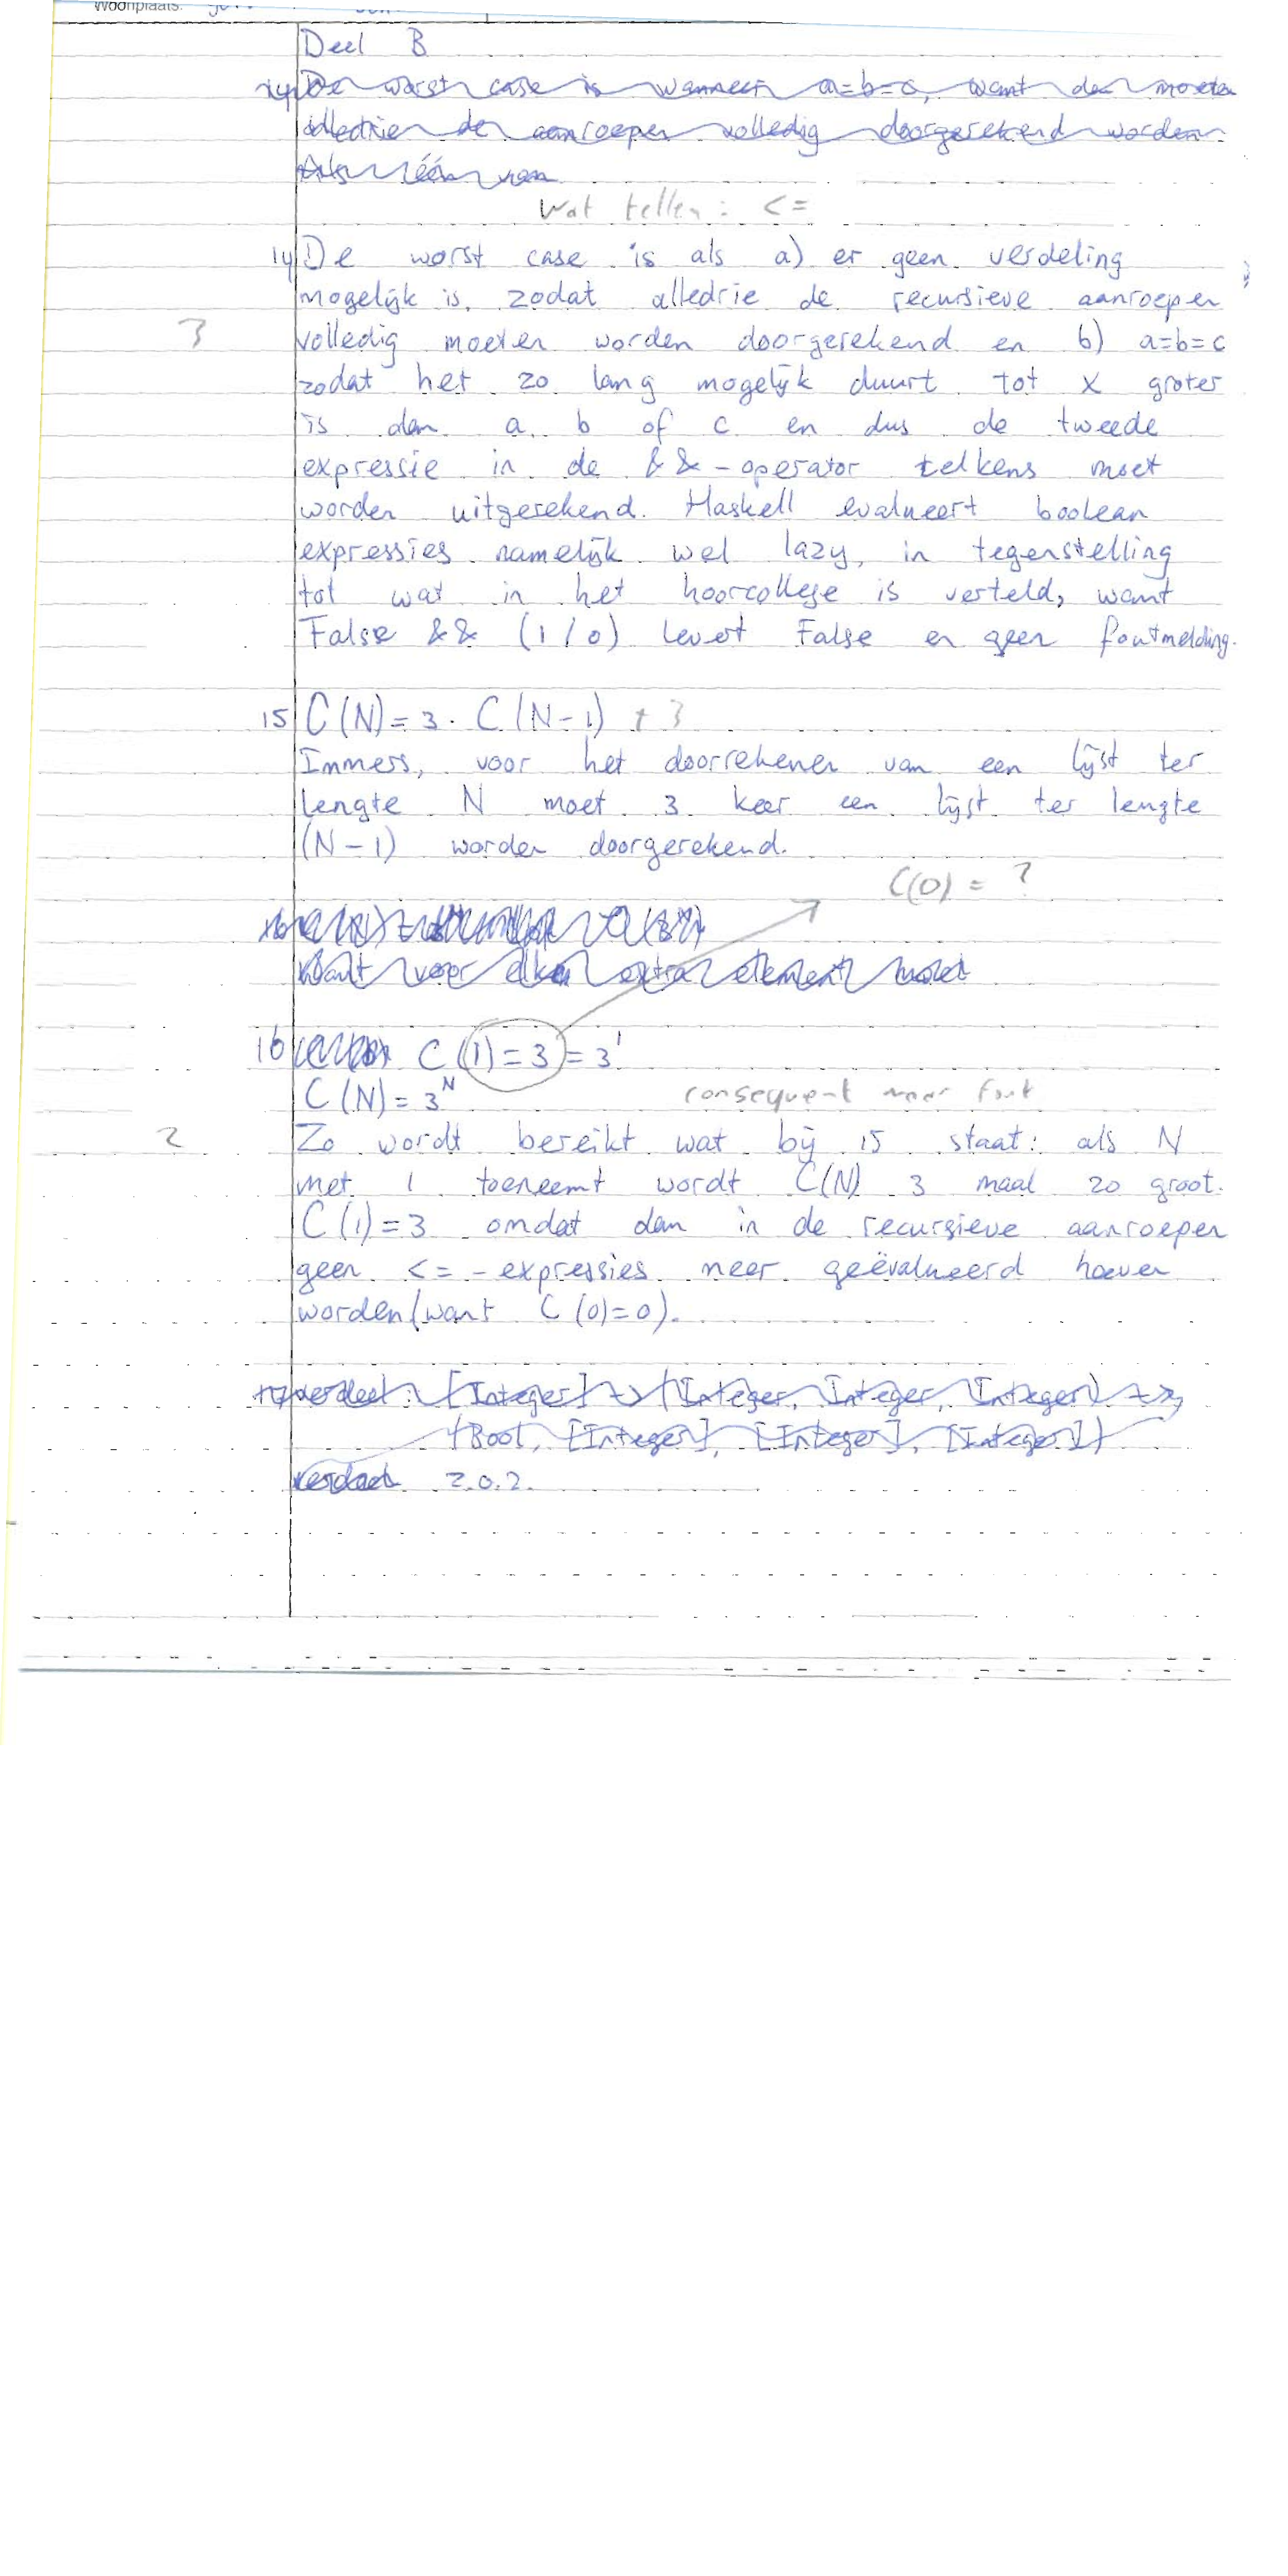 Woonplaats:
Deel B
14) De worst case is wanneer a=b=c, want dan moeten
alledrie de aanroepen volledig doorgerekend worden.
Als één van
Wat tellen: <=
14) De worst case is als a) er geen verdeling
mogelijk is, zodat alledrie de recursieve aanroepen
3 volledig moeten worden doorgerekend en b) a=b=c
zodat het zo lang mogelijk duurt tot x groter
is dan a, b of c en dus de tweede
expressie in de &&-operator telkens moet
worden uitgerekend. Haskell evalueert boolean
expressies namelijk wel lazy, in tegenstelling
tot wat in het hoorcollege is verteld, want
False && (1/0) levert False en geen foutmelding.
15 C(N)=3. C(N-1) + 3
Immers, voor het doorrekenen van een lijst ter
lengte N moet 3 keer een lijst ter lengte
(N-1) worden doorgerekend.
C(0) = ?
Want voor elken extra element moet
16 C(1)=3=3¹
C(N)=3ᴺ consequent maar fout
2 Zo wordt bereikt wat bij 15 staat: als N
met 1 toeneemt wordt C(N) 3 maal zo groot.
C(1)=3 omdat dan in de recursieve aanroepen
geen <=-expressies meer geëvalueerd hoeven
worden (want C(0)=0).
17 verdeel :: [Integer] -> (Integer, Integer, Integer) ->
(Bool, [Integer], [Integer], [Integer])
verdeel z.o.z.